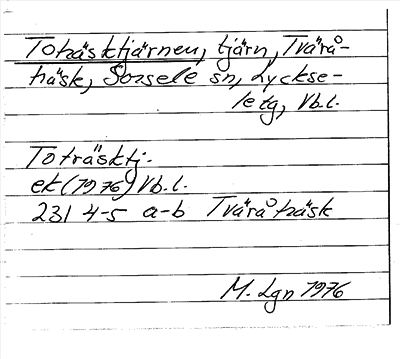 Toträsktjärnen, tjärn, Tvärå-
träsk, Sorsele sn, Lyckse-
le tg, Vb.l.
Toträsktj.
ek (1976) Vb.l.
231 4-5 a-b Tväråträsk
M. Lgn 1976